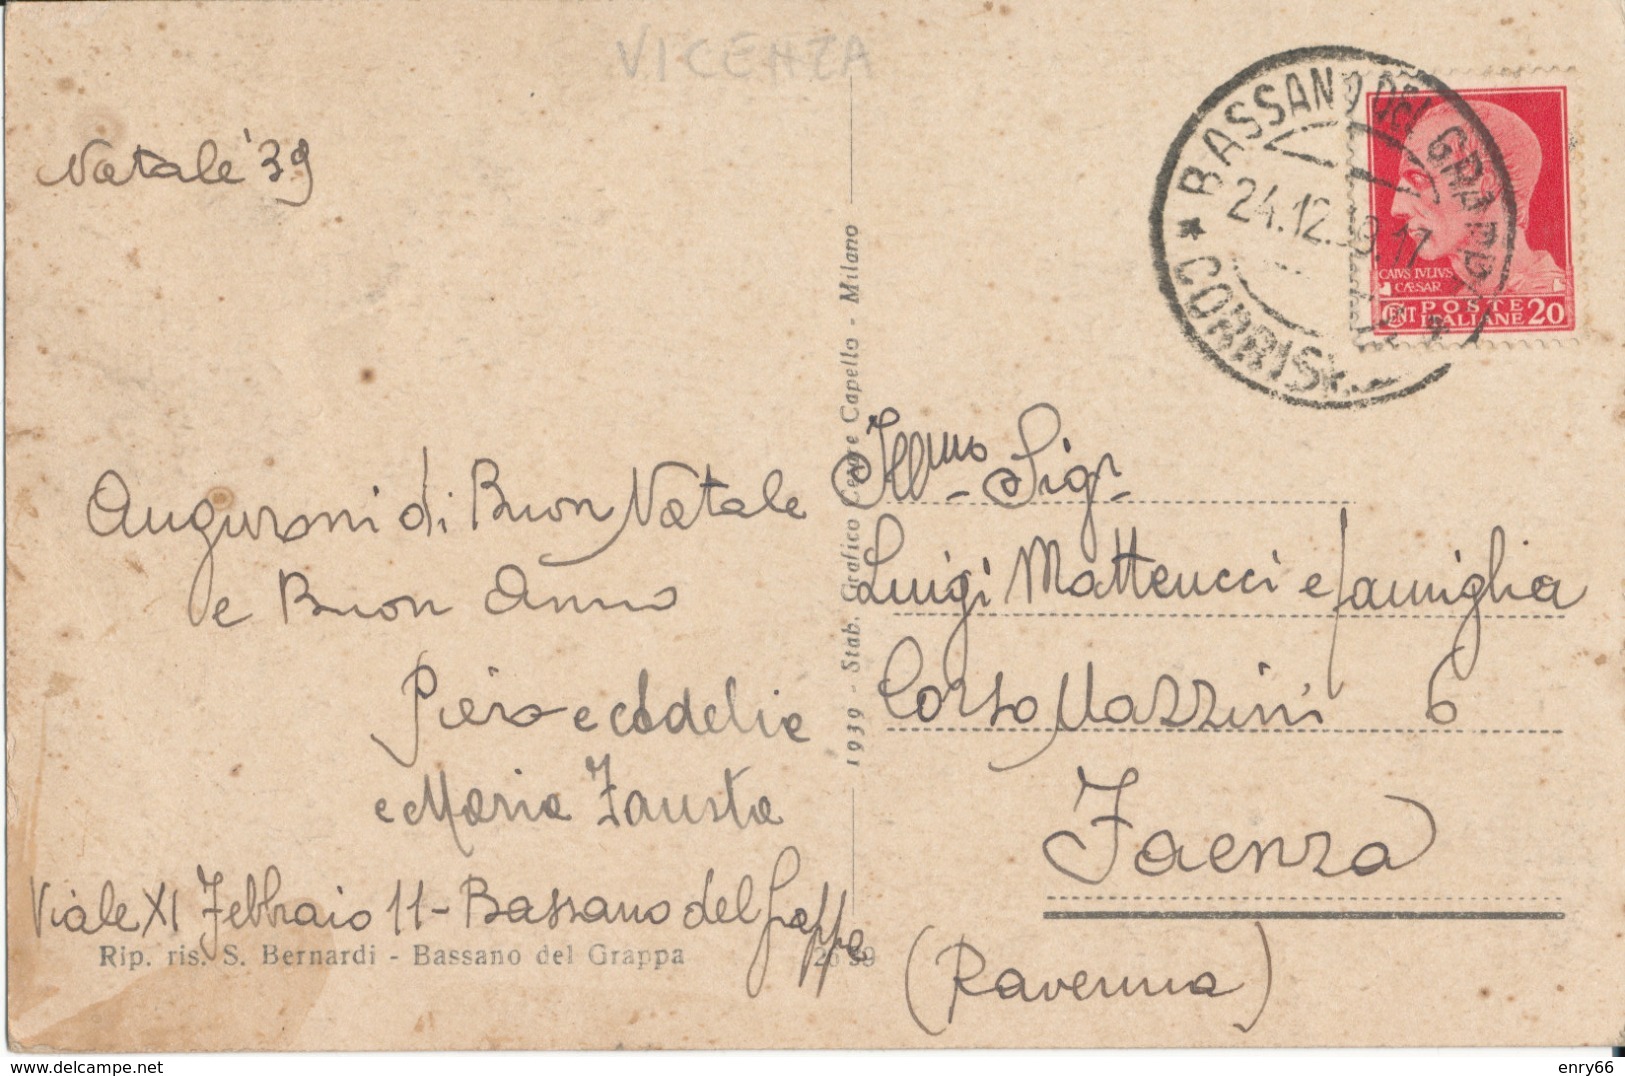 VICENZA
Natale '39
Auguroni di Buon Natale
e Buon Anno
Piero e Adelia
e Maria Fausta
Viale XI Febbraio 11 - Bassano del Grappa
Rip. ris. S. Bernardi - Bassano del Grappa
1939 - Stab. Grafico Cesare Capello - Milano
BASSANO DEL GRAPPA
24.12.39.17
* CORRISP.
CAIVS IVLIVS
CÆSAR
CENT 20
POSTE
ITALIANE
Illmo Sigr
Luigi Matteucci e famiglia
Corso Mazzini 6
Faenza
(Ravenna)
enry66
delcampe.net